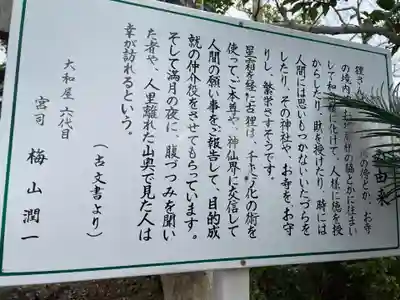 由来
狸さ
の境内
の傍とか、お寺
の脇とかに住まい
して和
に化けて、人様に徳を授
からしたり、財を授けたり、時には
人間には思いもつかないいたづらを
したり、その神社や、お寺をお守
りし、繁栄さすそうです。
星霜を経た古狸は、千変万化の術を
使って、ご本尊や、神仙界に交信して
人間の願い事をご報告して、目的成
就の仲介役をさせてもらっています。
そして満月の夜に、腹づつみを聞い
た者や、人里離れた山奥で見た人は
幸が訪れるという。
(古文書より)
大和屋 六代目
宮司 梅山潤一